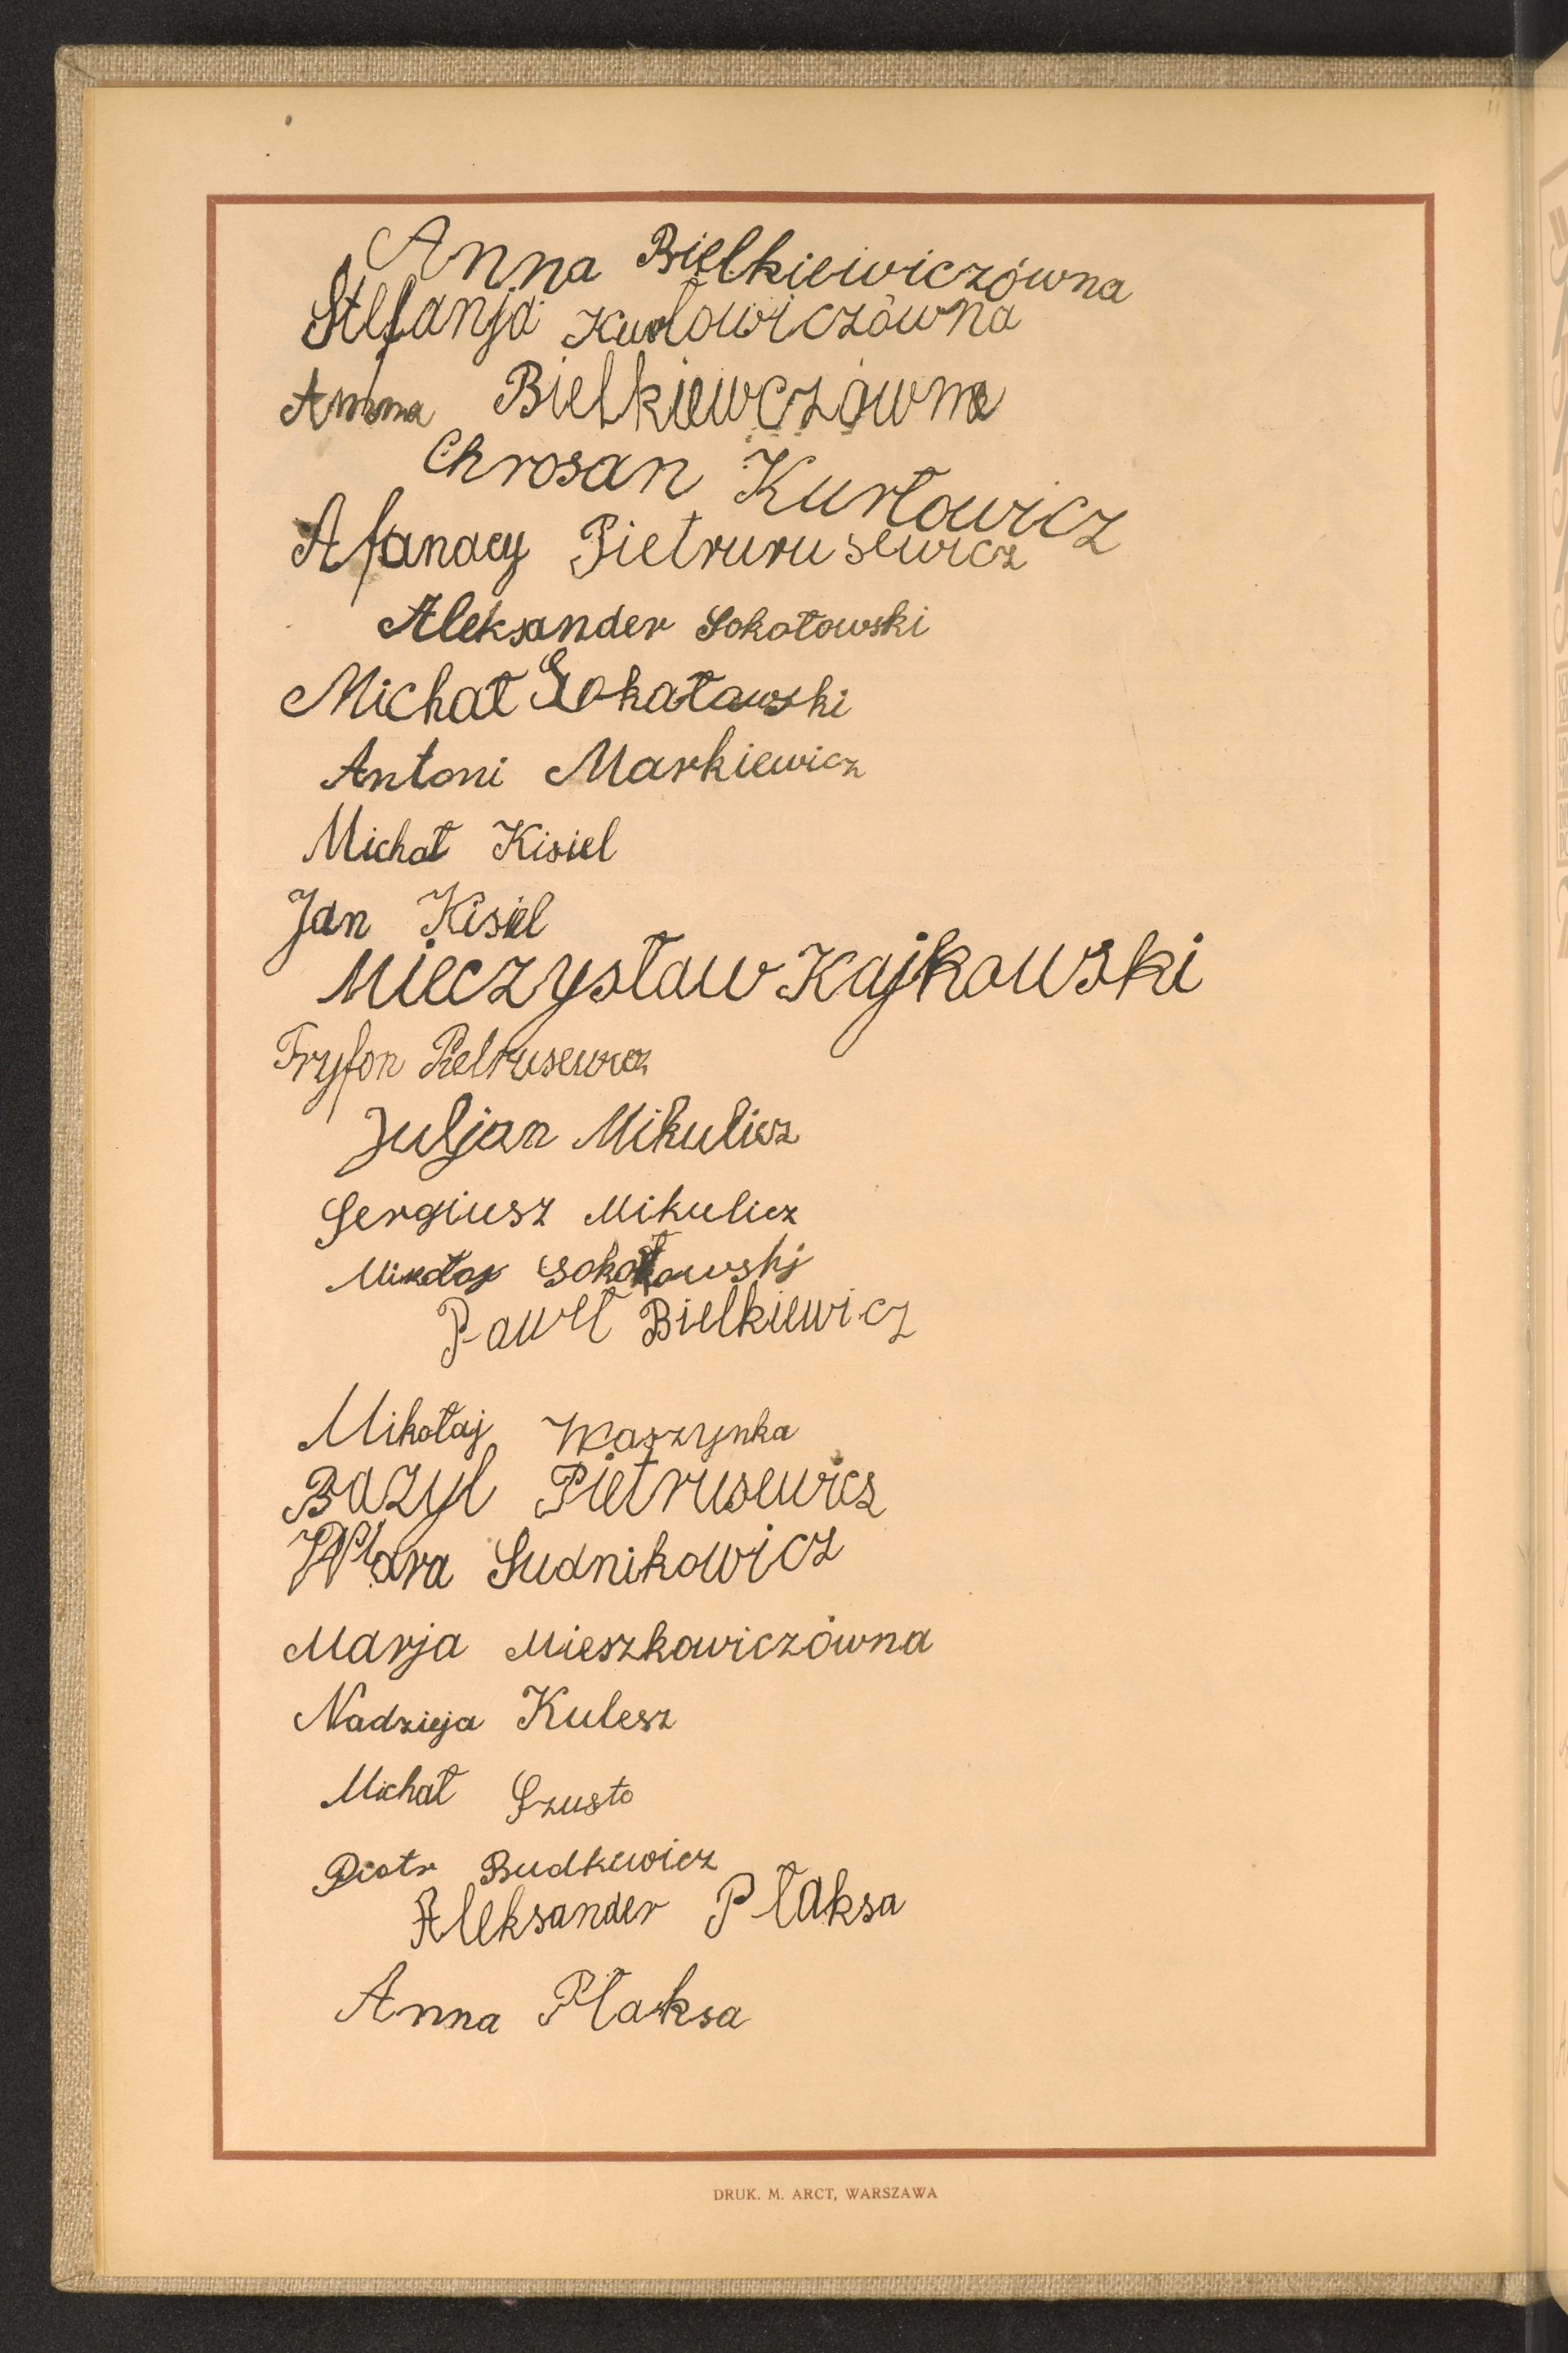 Anna Bielkieiwiczówna
Stefanja Kurłowiczówna
Anna Bielkiewczówna
Chrosan Kurłowicz
Afanacy Pietrurusewicz
Aleksander Sokołowski
Michał Sokałowski
Antoni Markiewicz
Michał Kisiel
Jan Kisiel
Mieczysław Kajkowski
Tryfon Pietrusewicz
Juljan Mikulicz
Sergiusz Mikulicz
Sokołowskj
Paweł Bielkiewicz
Mikołaj Waszynka
Bazyl Pietrusewicz
Sudnikowicz
Marja Mieszkowiczówna
Nadzieja Kulesz
Michał Szusto
Piotr Budkewicz
Aleksander Płaksa
Anna Płaksa
DRUK. M. ARCT, WARSZAWA